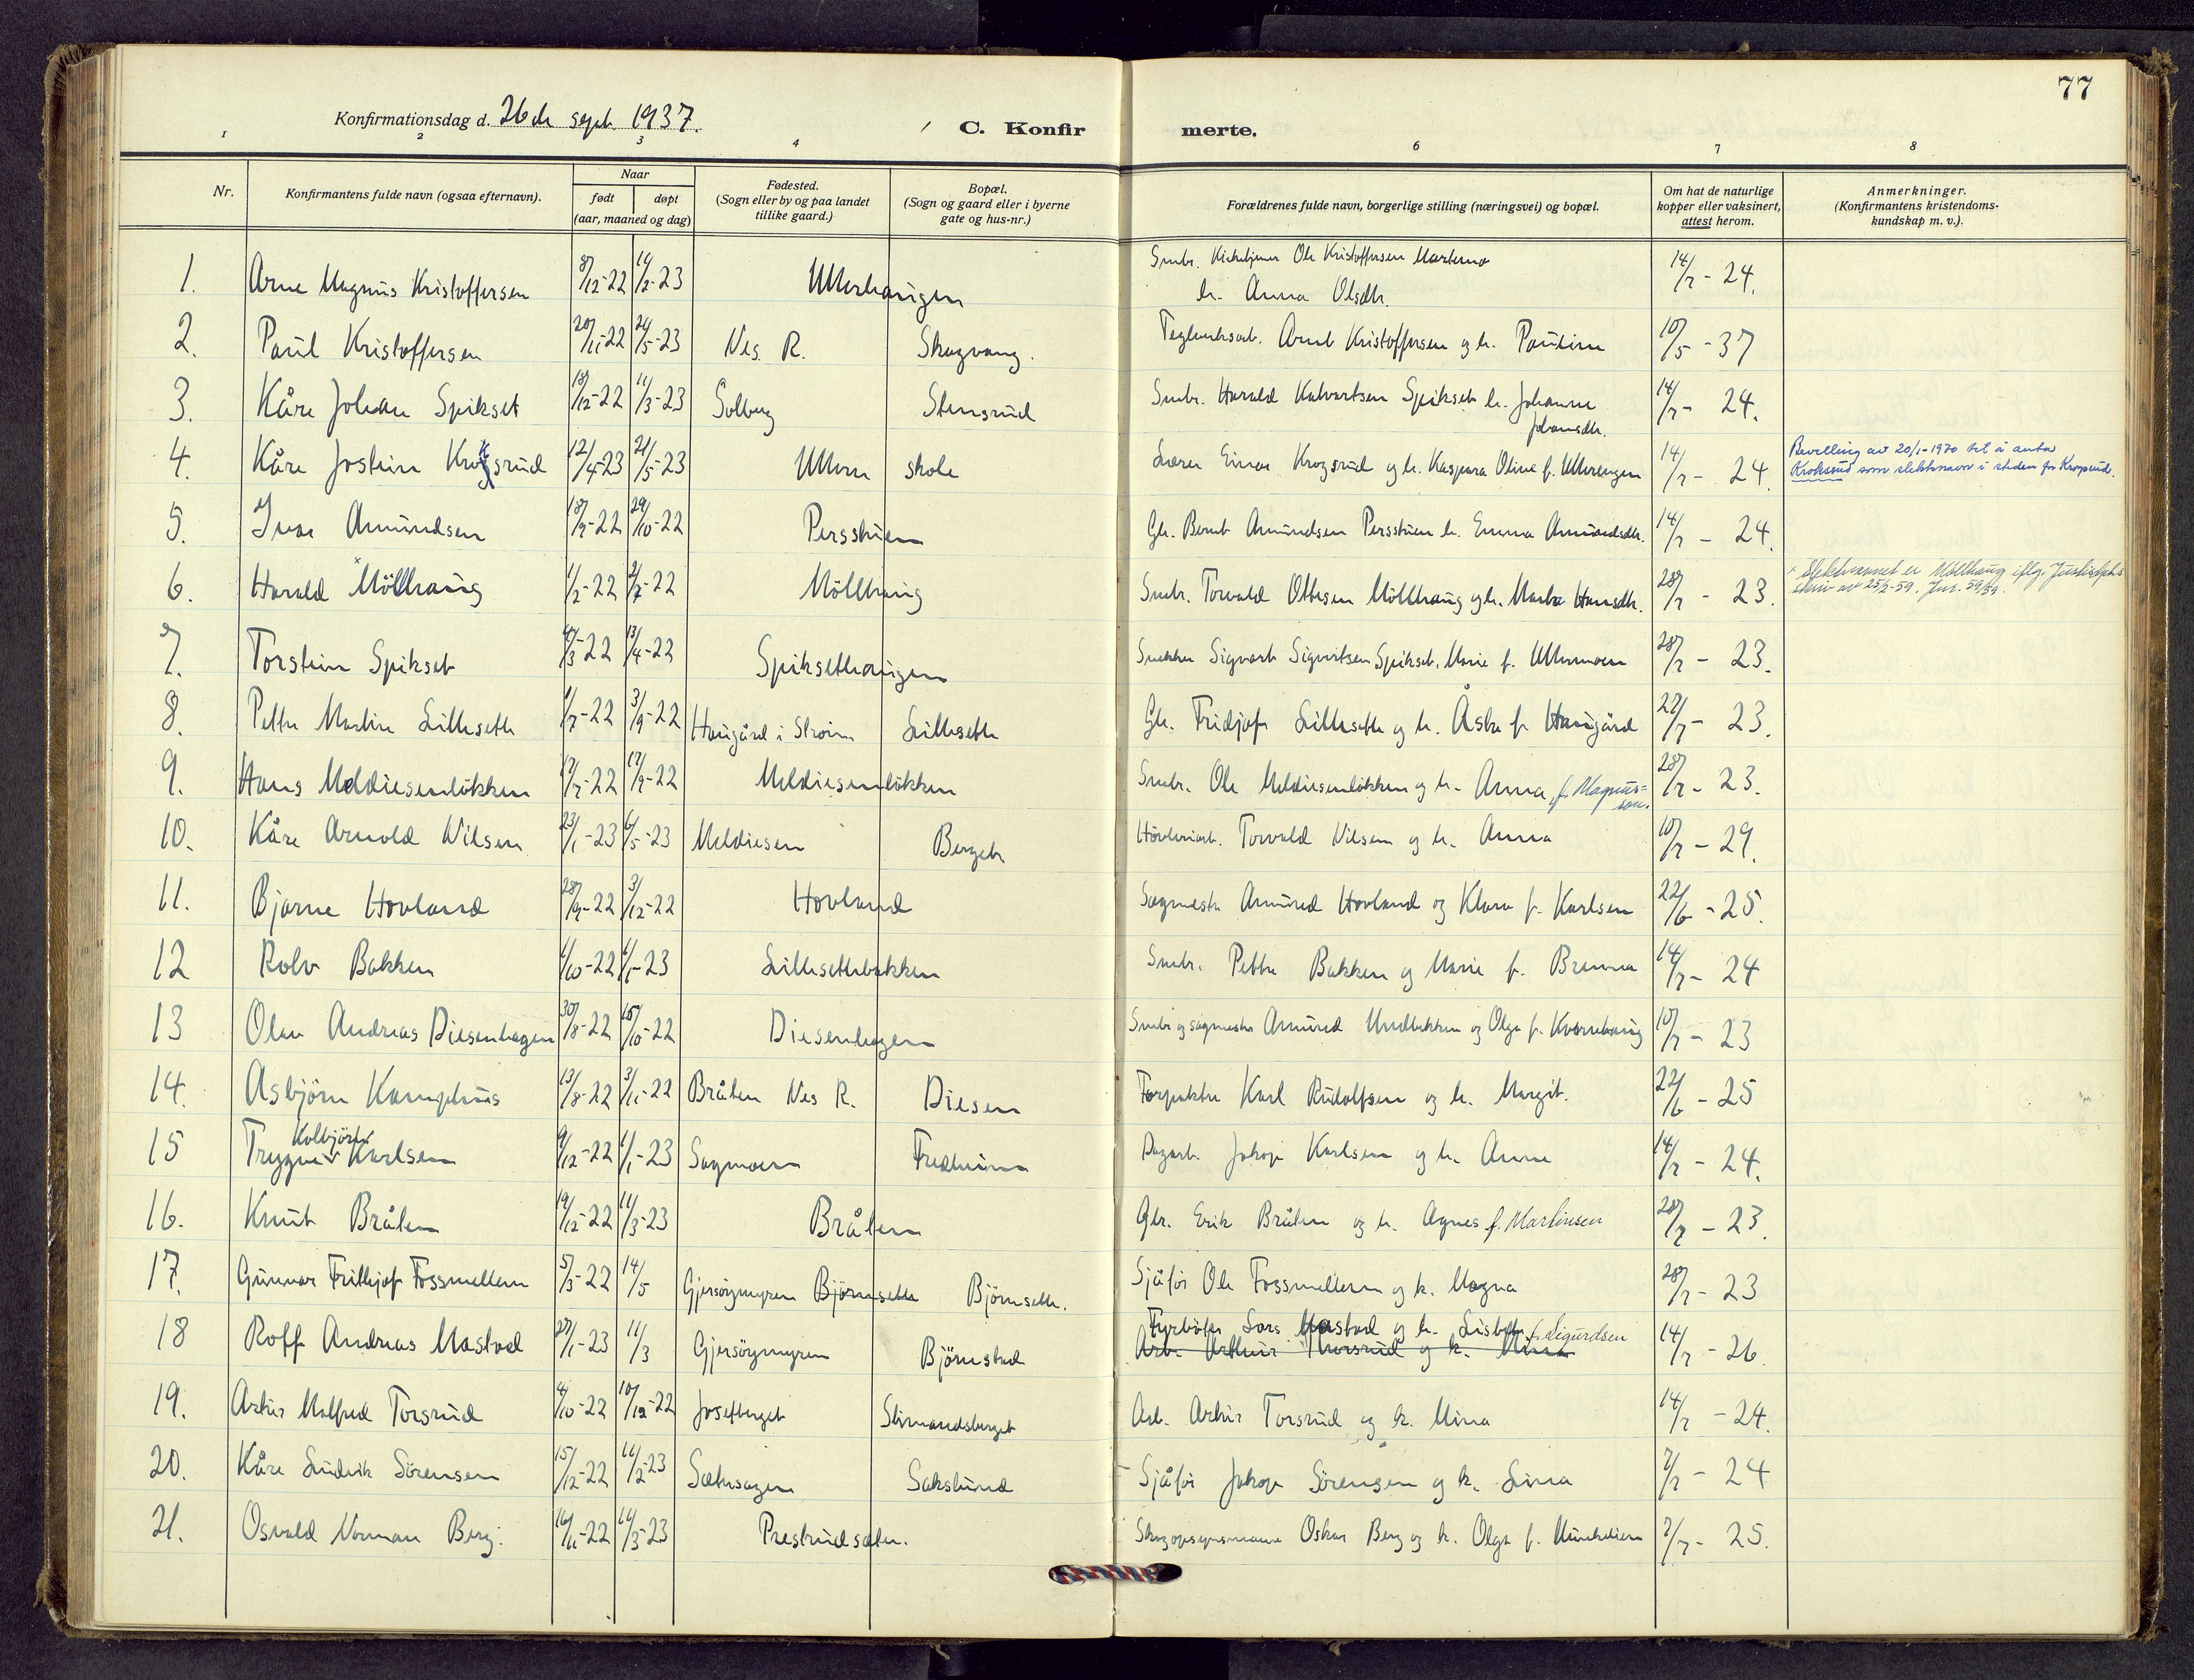 77
Konfirmationsdag d. 26de sept. 1937.
C. Konfirmerte.
1 2 3 4 6 7 8
Nr.
Konfirmantens fulde navn (ogsaa efternavn).
Naar
født døpt
(aar, maaned og dag)
Fødested.
(Sogn eller by og paa landet
tillike gaard.)
Bopæl.
(Sogn og gaard eller i byerne
gate og hus-nr.)
Forældrenes fulde navn, borgerlige stilling (næringsvei) og bopæl.
Om hat de naturlige
kopper eller vaksinert,
attest herom.
Anmerkninger.
(Konfirmantens kristendoms-
kundskap m. v.).
1. Arne Magnus Kristoffersen 8/12-22 14/2-23 Ullerhaugen Smbr. Ole Kristoffersen h. Anna Olsdtr. 14/7-24.
2. Paul Kristoffersen 20/11-22 24/5-23 Nes R. Skogvang. Teglverksarb. Arnt Kristoffersen og h. Pauline 10/5-37
3. Kåre Johan Spikset 18/12-22 11/3-23 Solberg Stensrud Smbr. Harald Kalvartsen Spikset h. Johanne
Johansdtr. 14/7-24.
4. Kåre Jostein Krogsrud 12/4-23 21/5-23 Ullern skole Lærer Einar Krogsrud og h. Kaspara Oline f. Ullerengen 14/7-24. Bevilling av 20/1-1970 til å anta
Kroksrud som slektsnavn i steden for Krogsrud.
5. Ivar Amundsen 18/9-22 29/10-22 Persstuen Gbr. Bernt Amundsen Persstuen h. Emma Amundsdtr. 14/7-24.
6. Harald Möllhaug 1/2-22 2/7-22 Möllhaug Smbr. Torvald Ottesen Möllhaug og h. Marta Hansdtr. 28/7-23. × Slektsnavnet er Möllhaug iflg. Justisdpts
skriv av 25/2-59. Jnr. 59/59.
7. Torstein Spikset 4/3-22 13/4-22 Spiksethaugen Snekker Sigvart Sigvartsen Spikset, Marie f. Ullermoen 28/7-23.
8. Petter Martin Lilleseth 1/7-22 3/9-22 Haugård i Ström Lilleseth Gbr. Fridjof Lilleseth og h. Åsta f. Haugård 22/7-23.
9. Hans Meldiesenlökken 17/7-22 17/9-22 Meldiesenlökken Smbr. Ole Meldiesenlökken og h. Anna f. Magnus-
son. 28/7-23.
10. Kåre Arnold Nilsen 23/1-23 6/5-23 Meldiesen Berget Hövleriarb. Torvald Nilsen og h. Anna 10/7-29.
11. Bjarne Hovland 28/9-22 3/12-22 Hovland Sagmester Amund Hovland og Klara f. Karlsen 22/6-25.
12 Rolv Bakken 1/10-22 1/1-23 Lillesethbakken Smbr. Petter Bakken og Marie f. Brenna 14/7-24
13 Olav Andreas Diesenhagen 30/8-22 15/10-22 Diesenhagen Smbr og sagmester Amund Undbekken og Olga f. Kvernhaug 10/7-23
14. Asbjörn Kamphus 13/8-22 3/11-22 Bråten Nes R. Diesen Torpakter Karl Rudolfsen og h. Margit. 22/6-25
Kolbjörn
15 Trygve Karlsen 9/12-22 1/1-23 Sagmoen Fredheim Dagarb. Jakop Karlsen og h. Anna 14/7-24.
16. Knut Bråten 19/12-22 11/3-23 Bråten Gbr. Erik Bråten og h. Agnes f. Martinsen 28/7-23.
17. Gunnar Frithjof Fossmellem 5/3-22 14/5 Gjersöymyren Björnseth Björnseth. Sjåför Ole Fossmellem og h. Magna 28/7-23
18 Roff Andreas Mastad 27/1-23 11/3 Gjersöymyren Björnstad Fyrböter Lars Mastad og h. Lisbeth f. Sigurdsen
Arb. Arthur Thorsrud og h. Mina 14/7-26.
19. Artur Malfred Torsrud 4/10-22 10/12-22 Josefberget Stinaredsberget Arb. Artur Torsrud og h. Mina 14/7-24.
20. Kåre Ludvik Sörensen 15/12-22 11/2-23 Sætersagen Sakslund Sjåför Jakop Sörensen og h. Lina 7/7-24
21. Osvald Norman Berg. 16/11-22 11/3-23 Prestrudsæter. Skogopsynsmann Oskar Berg og h. Olga f. Munkebien 7/7-25.